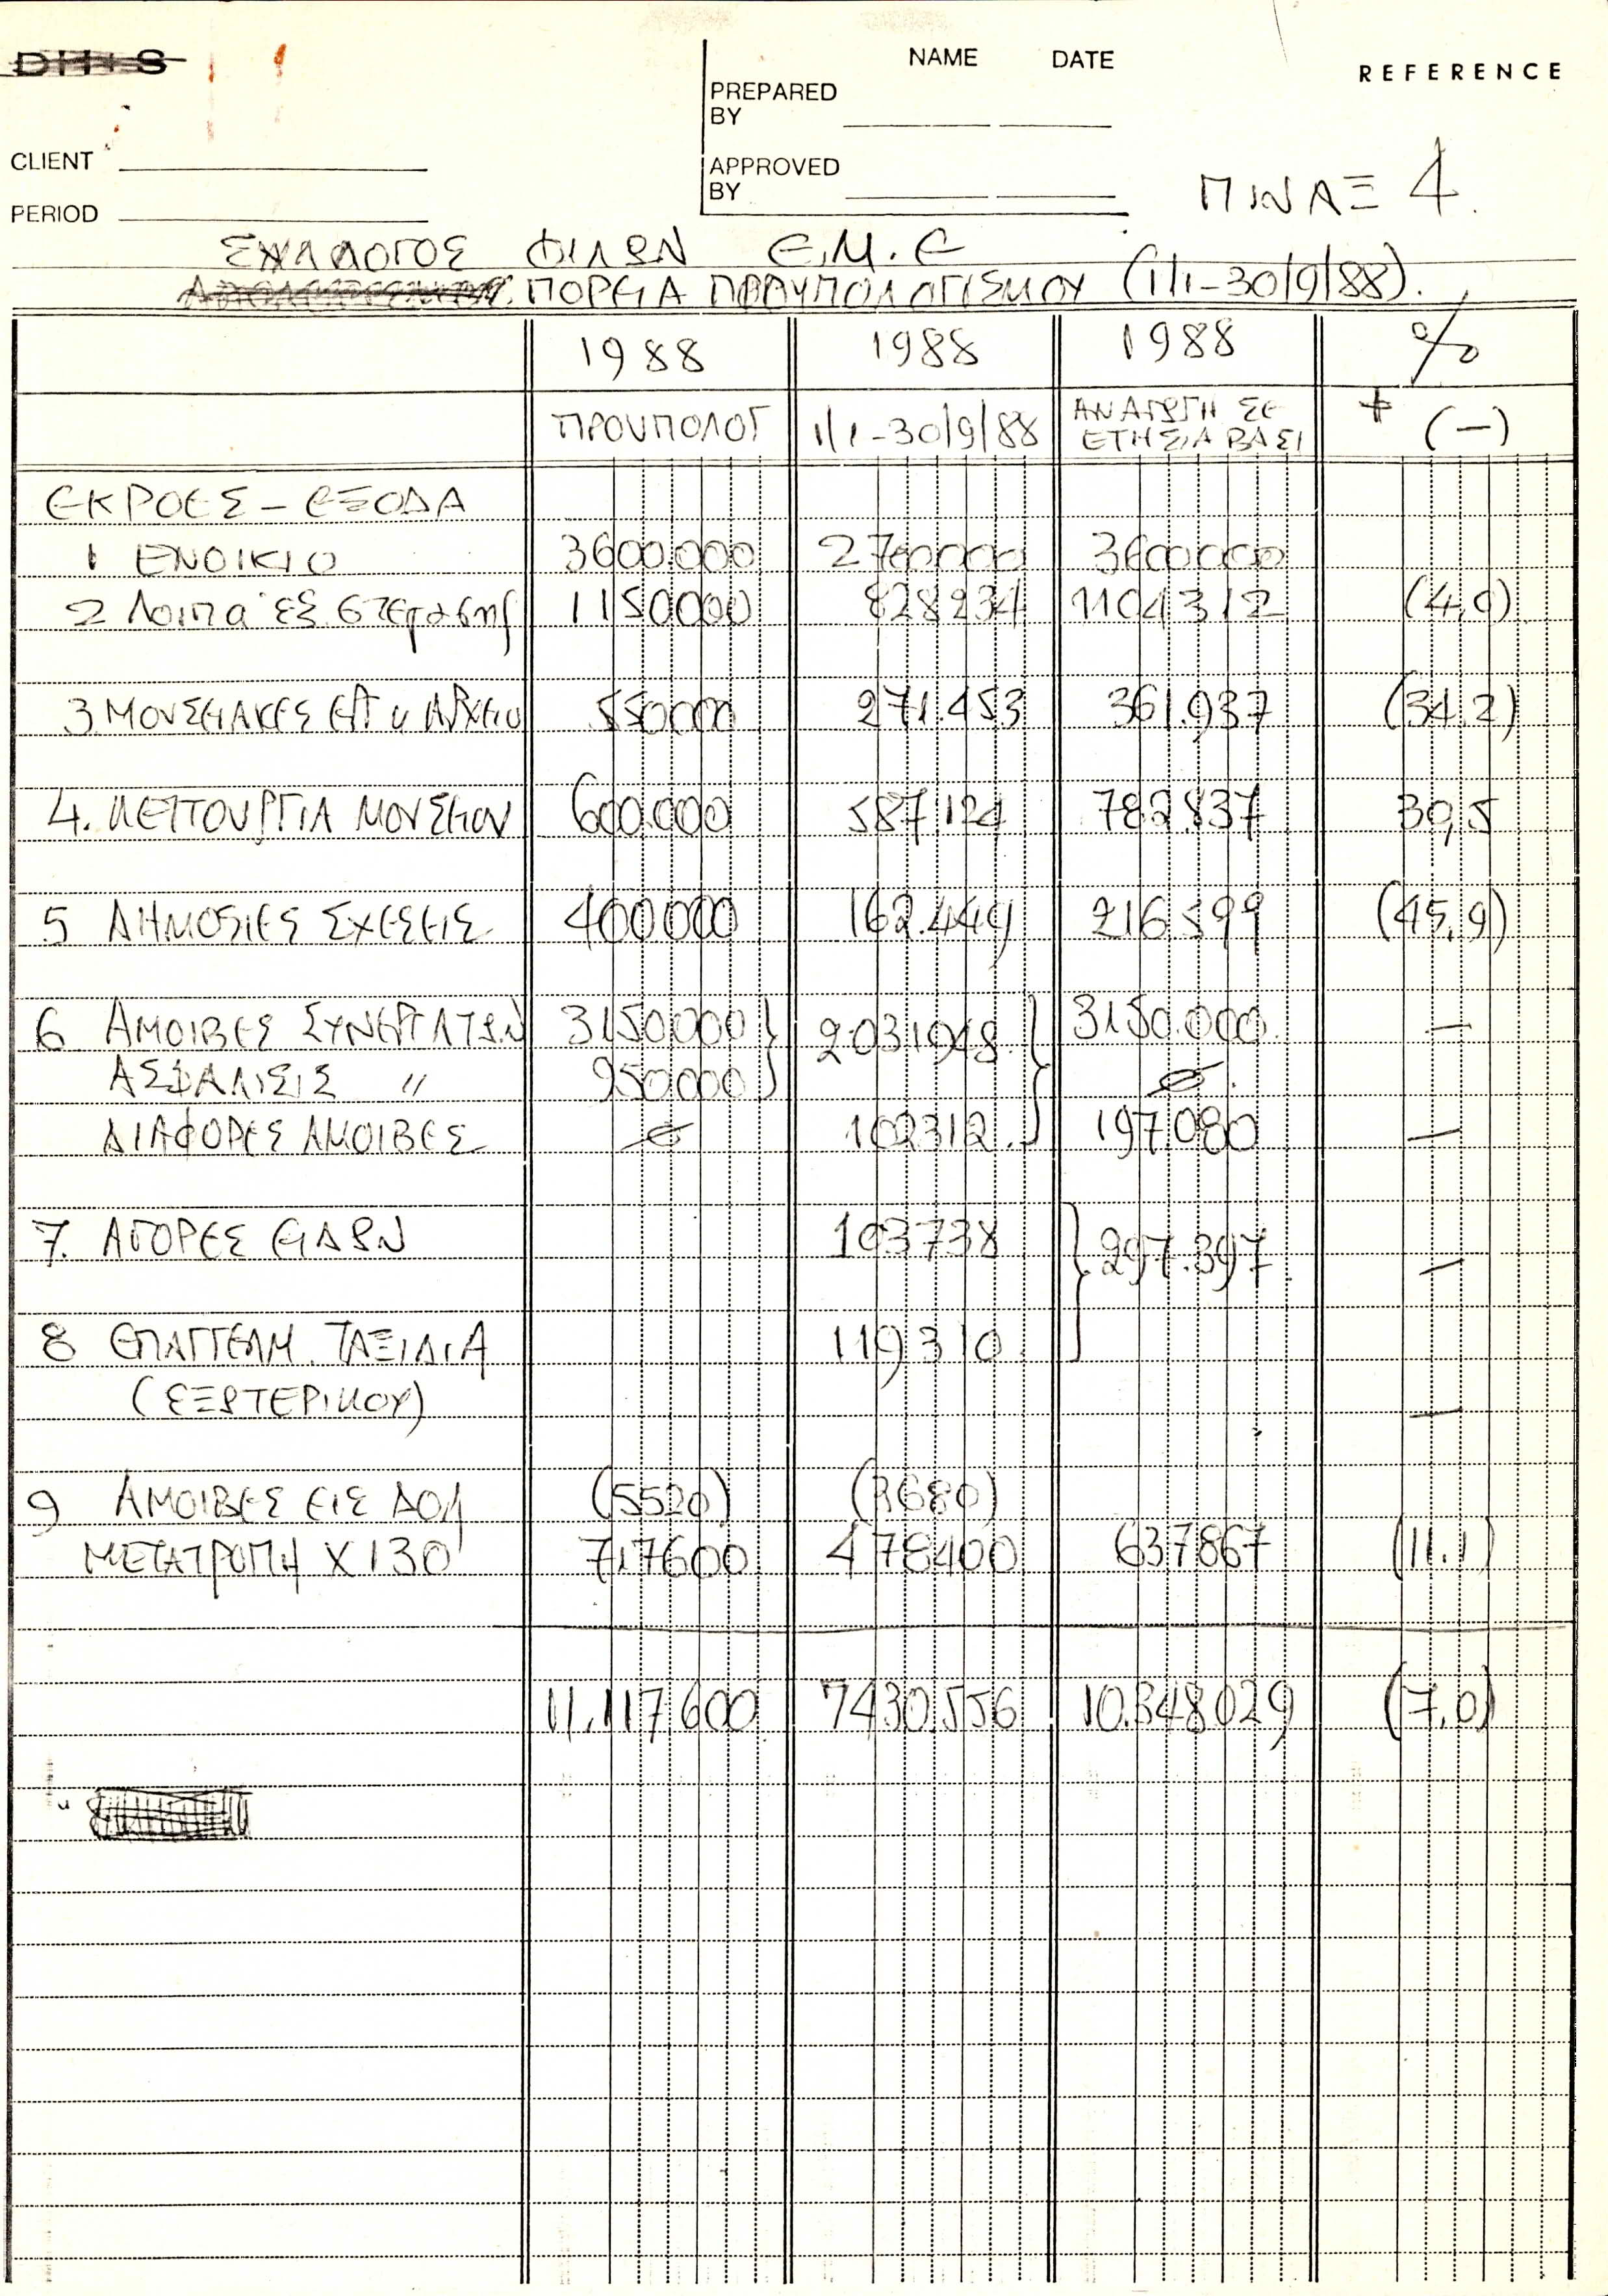 DH+S
NAME DATE
REFERENCE
PREPARED BY
CLIENT
APPROVED BY
PERIOD
ΠΙΝΑΞ 4.
ΣΥΛΛΟΓΟΣ ΦΙΛΩΝ Ε.Μ.Ε
ΠΟΡΕΙΑ ΠΡΟΥΠΟΛΟΓΙΣΜΟΥ (1/1-30/9/88).
1988 1988 1988 %
ΠΡΟΥΠΟΛΟΓ 1/1-30/9/88 ΑΝΑΓΩΓΗ ΣΕ ΕΤΗΣΙΑ ΒΑΣΙ + (-)
ΕΚΡΟΕΣ - ΕΞΟΔΑ
1 ΕΝΟΙΚΙΟ 3600.000 2700000 3600000
2 Λοιπά έξ. στεγασης 1150000 828234 1104312 (4,0)
3 ΜΟΥΣΕΙΑΚΕΣ ΕΡΓ ΑΡΧΕΙΟ 550000 271.453 361.937 (34.2)
4. ΛΕΙΤΟΥΡΓΙΑ ΜΟΥΣΕΙΟΥ 600.000 587124 782837 30,5
5 ΔΗΜΟΣΙΕΣ ΣΧΕΣΕΙΣ 400000 162.449 216599 (45,9)
6 ΑΜΟΙΒΕΣ ΣΥΝΕΡΓΑΤΩΝ 3150000 2031948 3150.000 —
ΑΣΦΑΛΙΣΙΣ " 950000 Ø
ΔΙΑΦΟΡΕΣ ΑΜΟΙΒΕΣ Ø 102312 197080 —
7. ΑΓΟΡΕΣ ΕΙΔΩΝ 103738 297.397 —
8 ΕΠΑΓΓΕΛΜ. ΤΑΞΙΔΙΑ 119310
(ΕΞΩΤΕΡΙΚΟΥ) —
9 ΑΜΟΙΒΕΣ ΕΙΣ ΔΟΛ (5520) (3680)
ΜΕΤΑΤΡΟΠΗ Χ130 717600 478400 637867 (11.1)
11.117.600 7430.556 10.348029 (7,0)